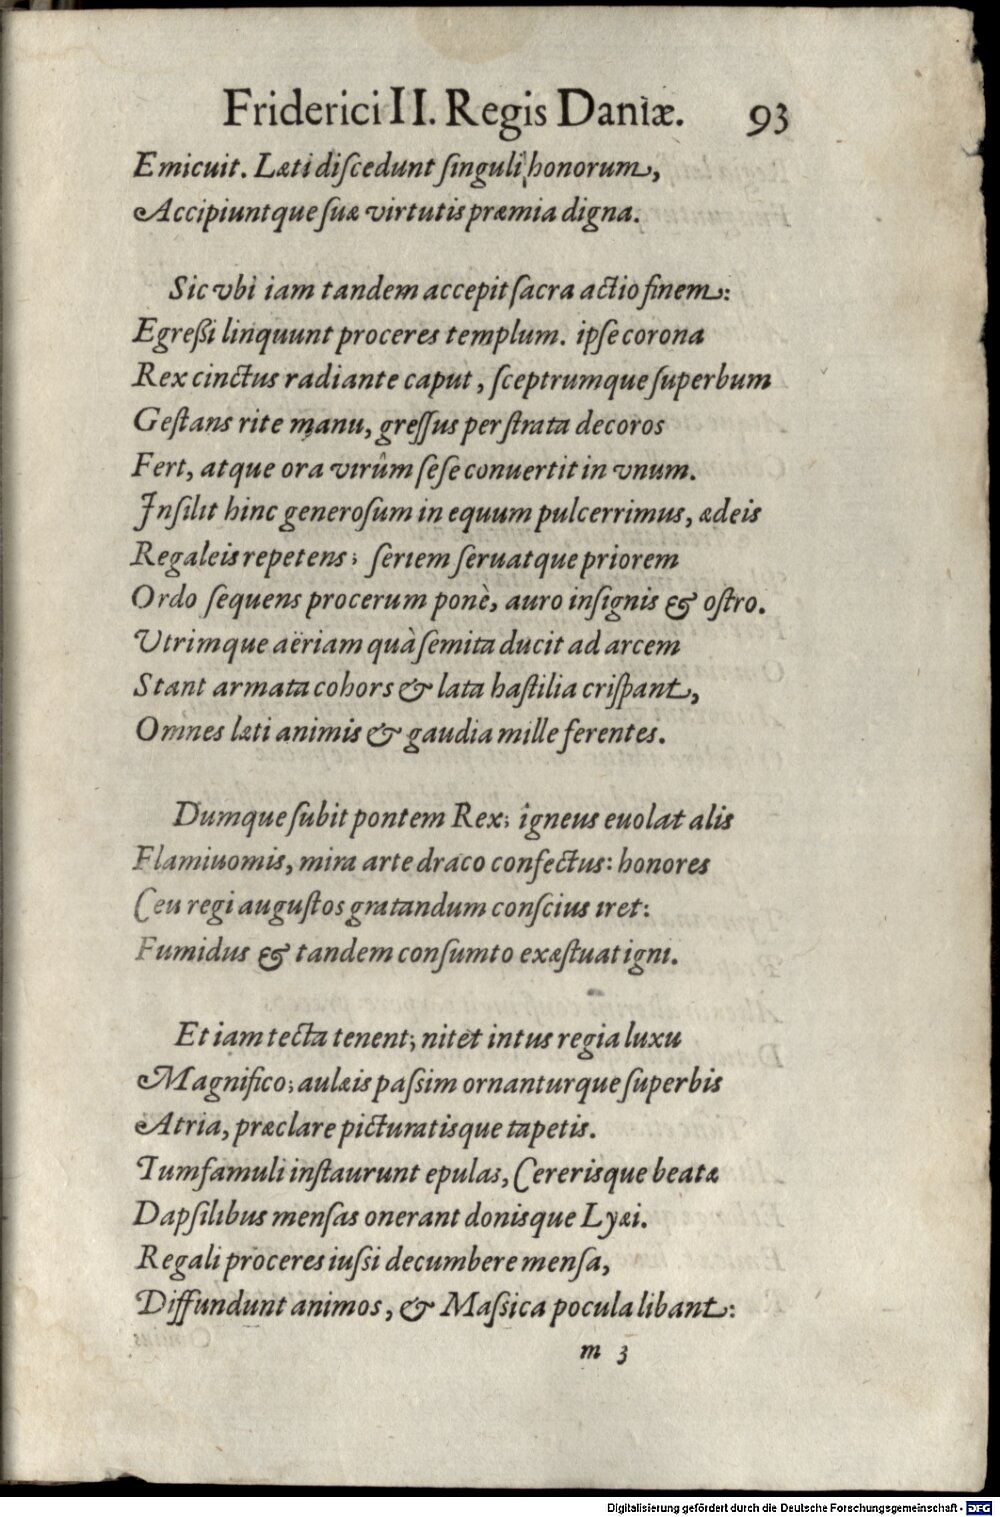 Friderici II. Regis Daniæ. 93
Emicuit. Læti diſcedunt ſinguli honorum,
Accipiuntque ſuæ virtutis præmia digna.
Sic vbi iam tandem accepit ſacra actio finem:
Egreßi linquunt proceres templum. ipſe corona
Rex cinctus radiante caput, ſceptrumque ſuperbum
Geſtans rite manu, greſſus per ſtrata decoros
Fert, atque ora virûm ſeſe conuertit in vnum.
Inſilit hinc generoſum in equum pulcerrimus, ædeis
Regaleis repetens; ſeriem ſeruatque priorem
Ordo ſequens procerum ponè, auro inſignis & oſtro.
Vtrimque aëriam quà ſemita ducit ad arcem
Stant armata cohors & lata haſtilia criſpant,
Omnes læti animis & gaudia mille ferentes.
Dumque ſubit pontem Rex; igneus euolat alis
Flamiuomis, mira arte draco confectus: honores
Ceu regi auguſtos gratandum conſcius iret:
Fumidus & tandem conſumto exæſtuat igni.
Et iam tecta tenent; nitet intus regia luxu
Magnifico; aulæis paſsim ornanturque ſuperbis
Atria, præclare picturatisque tapetis.
Tum famuli inſtaurunt epulas, Cererisque beatæ
Dapſilibus menſas onerant donisque Lyæi.
Regali proceres iuſsi decumbere menſa,
Diffundunt animos, & Maſsica pocula libant:
m 3
Digitalisierung gefördert durch die Deutsche Forschungsgemeinschaft - DFG